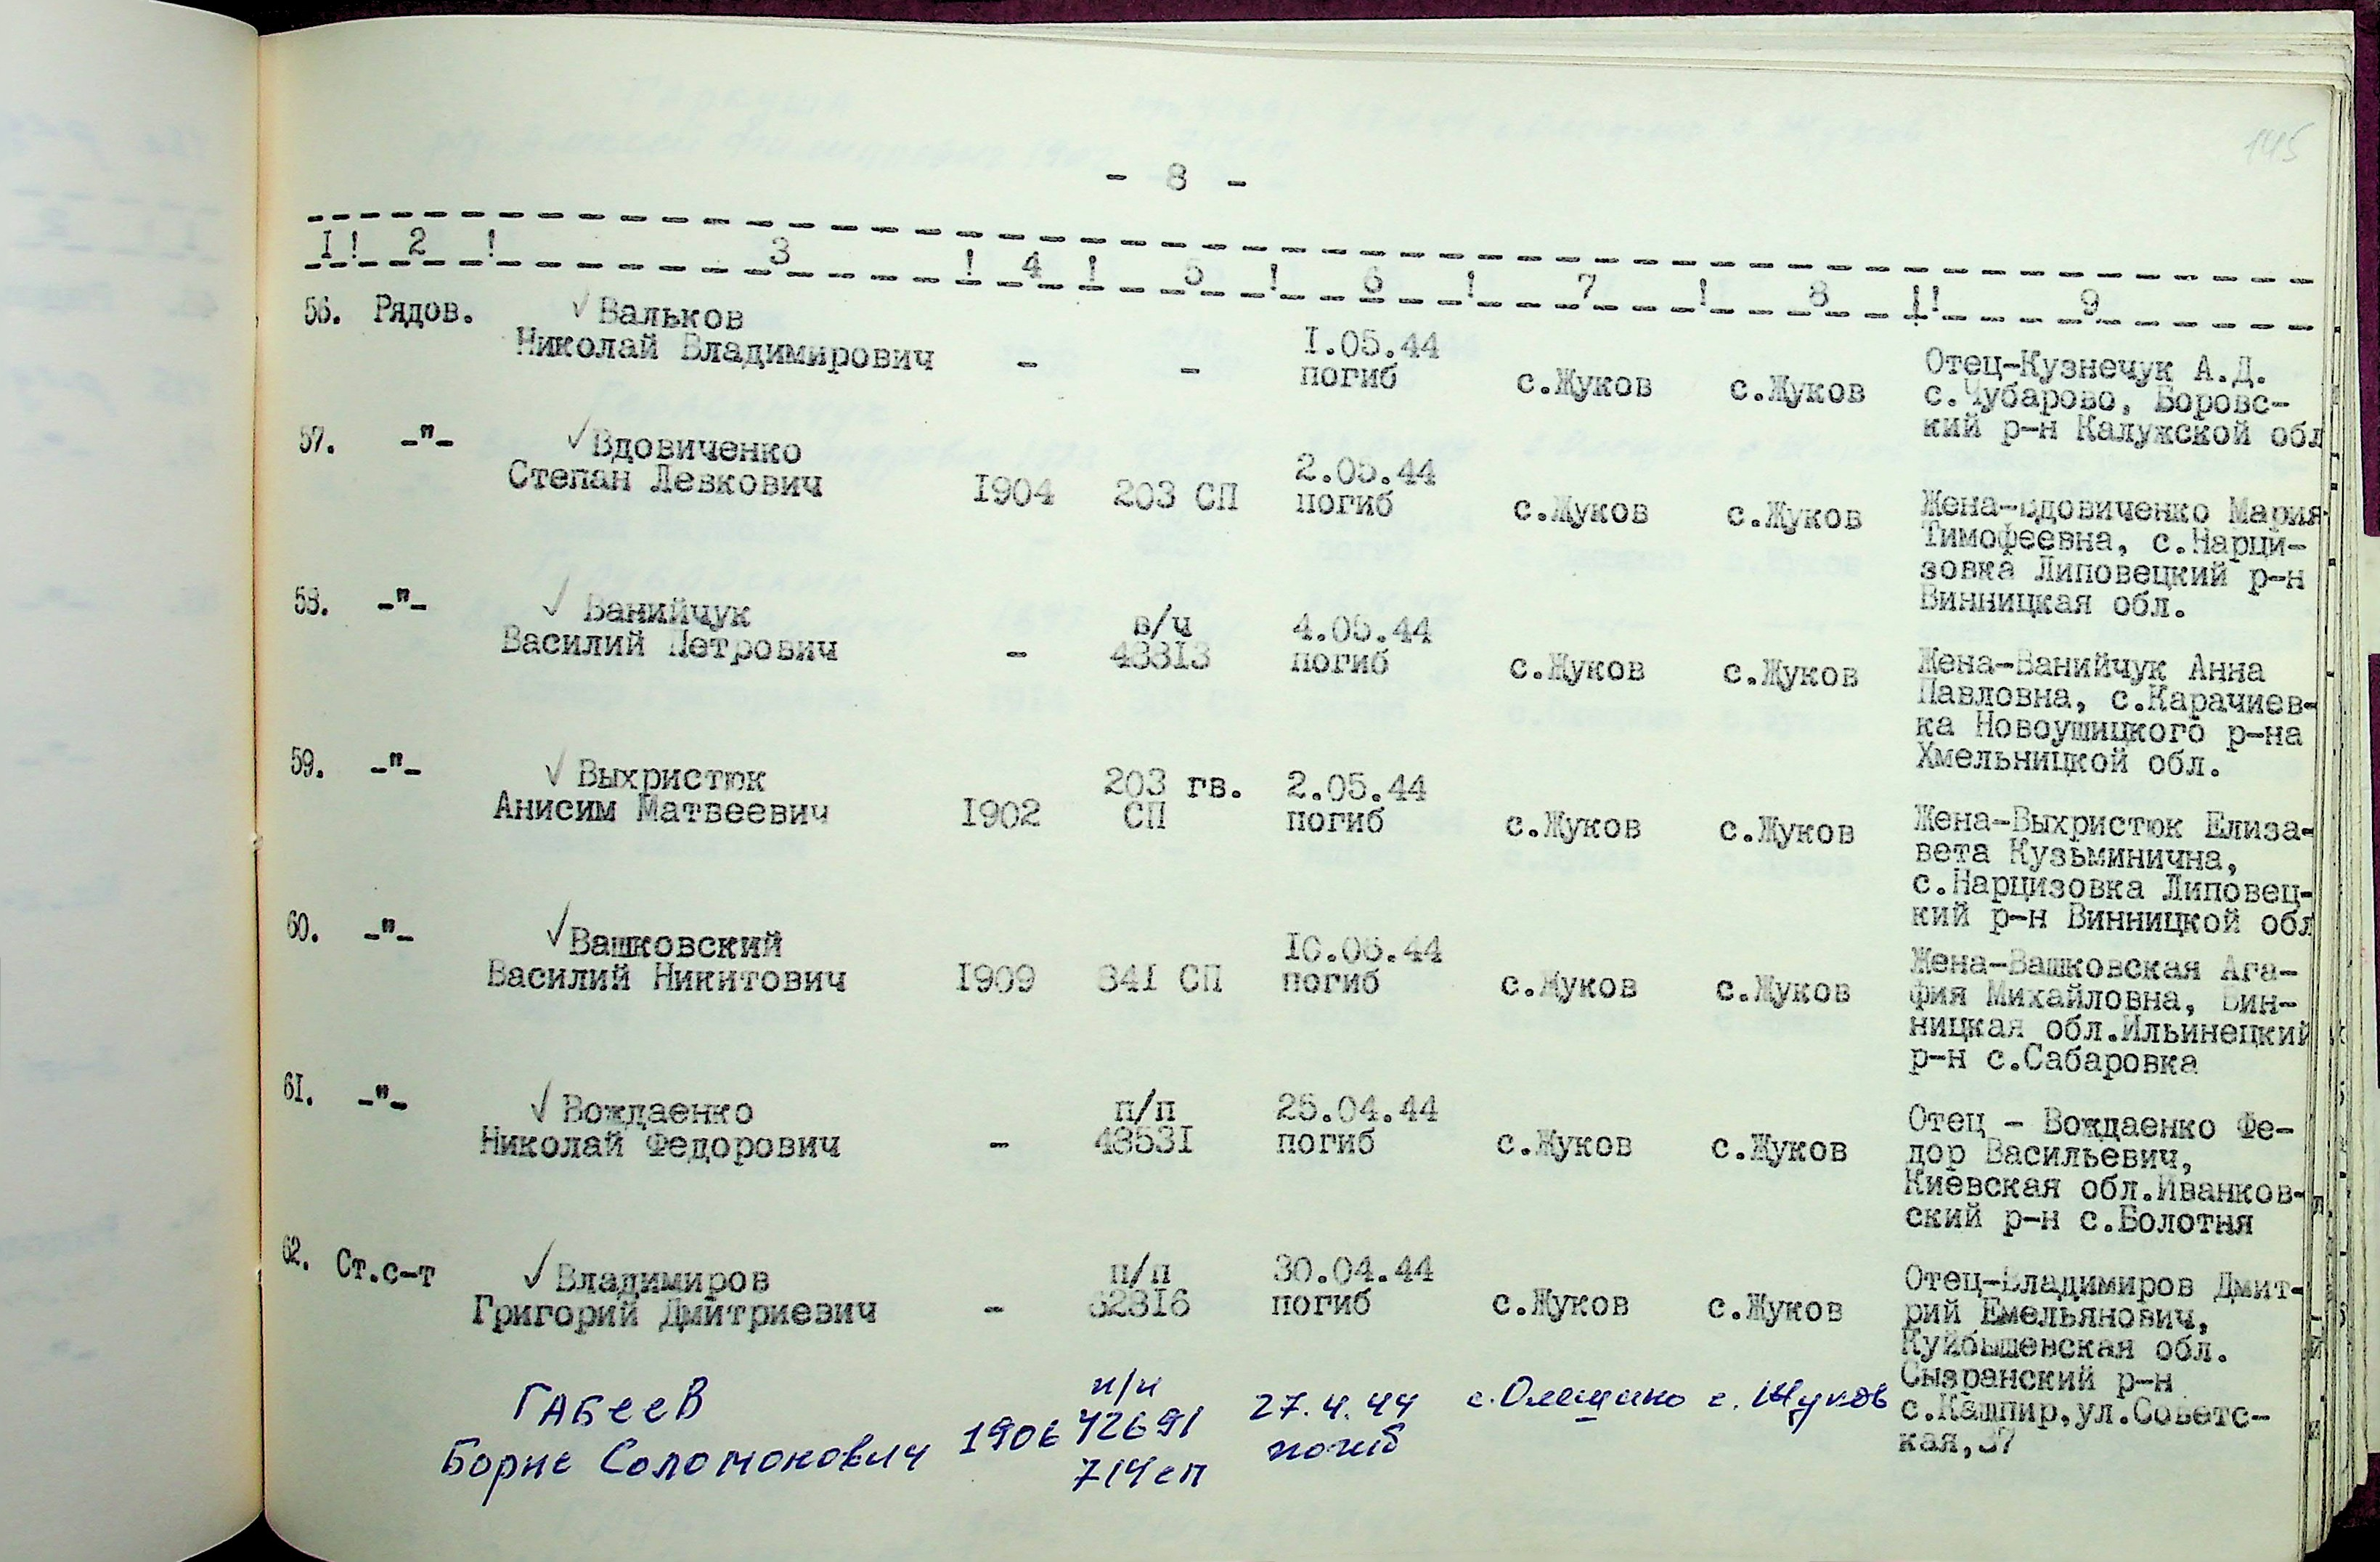 145
- 8 -
I ! 2 ! 3 ! 4 ! 5 ! 6 ! 7 ! 8 !! 9
56. Рядов. ✓ Вальков
Николай Владимирович - - 1.05.44 погиб с.Жуков с.Жуков
Отец-Кузнечук А.Д.
с.Чубарово, Боровс-
кий р-н Калужской обл
57. -"- ✓ Вдовиченко
Степан Левкович I904 203 СП 2.05.44 погиб с.Жуков с.Жуков
Жена-Вдовиченко Мария
Тимофеевна, с.Нарци-
зовка Липовецкий р-н
Винницкая обл.
58. -"- ✓ Ванийчук
Василий Петрович - в/ч 4.05.44 погиб с.Жуков с.Жуков
Жена-Ванийчук Анна
Павловна, с.Карачиев-
ка Новоушицкого р-на
Хмельницкой обл.
59. -"- ✓ Выхристюк
Анисим Матвеевич I902 203 гв. СП 2.05.44 погиб с.Жуков с.Жуков
Жена-Выхристюк Елиза-
вета Кузьминична,
с.Нарцизовка Липовец-
кий р-н Винницкой обл
60. -"- ✓ Вашковский
Василий Никитович I909 841 СП погиб с.Жуков с.Жуков
Жена-Вашковская Ага-
фия Михайловна, Вин-
ницкая обл.Ильинецкий
р-н с.Сабаровка
61. -"- ✓ Вождаенко
Николай Федорович - п/п 48531 25.04.44 погиб с.Жуков с.Жуков
Отец - Вождаенко Фе-
дор Васильевич,
Киевская обл.Иванков-
ский р-н с.Болотня
62. Ст.с-т ✓ Владимиров
Григорий Дмитриевич - п/п 30.04.44 погиб с.Жуков с.Жуков
Отец-Владимиров Дмит-
рий Емельянович,
Куйбышевская обл.
Сызранский р-н
с.Кашпир,ул.Советс-
кая,37
Габеев
Борис Соломонович 1906 п/п 42691 714 сп 27.4.44 погиб с.Олещино с. Жуков